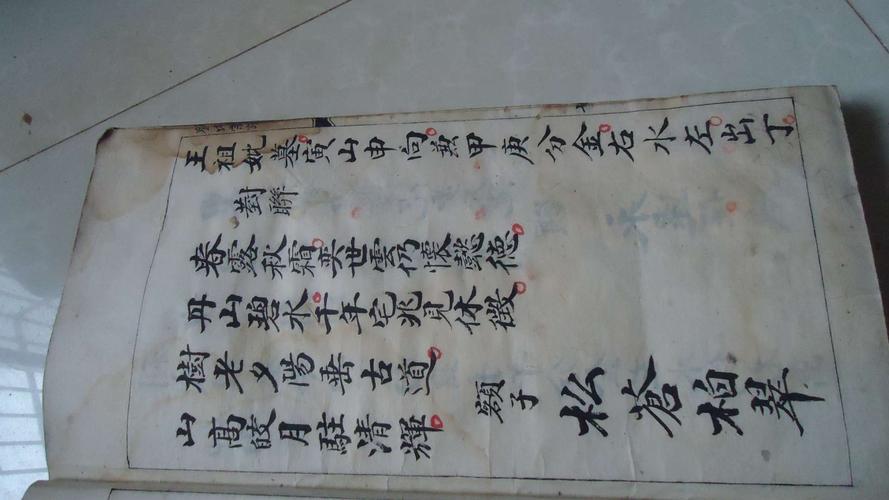 王祖妣墓寅山申向兼甲庚分金右水左出丁
對聯
春露秋霜奕世雲仍懷懿德
丹山碧水千年宅兆見休徵
樹老夕陽垂古道
山高皎月駐清輝
額子
松蒼柏翠